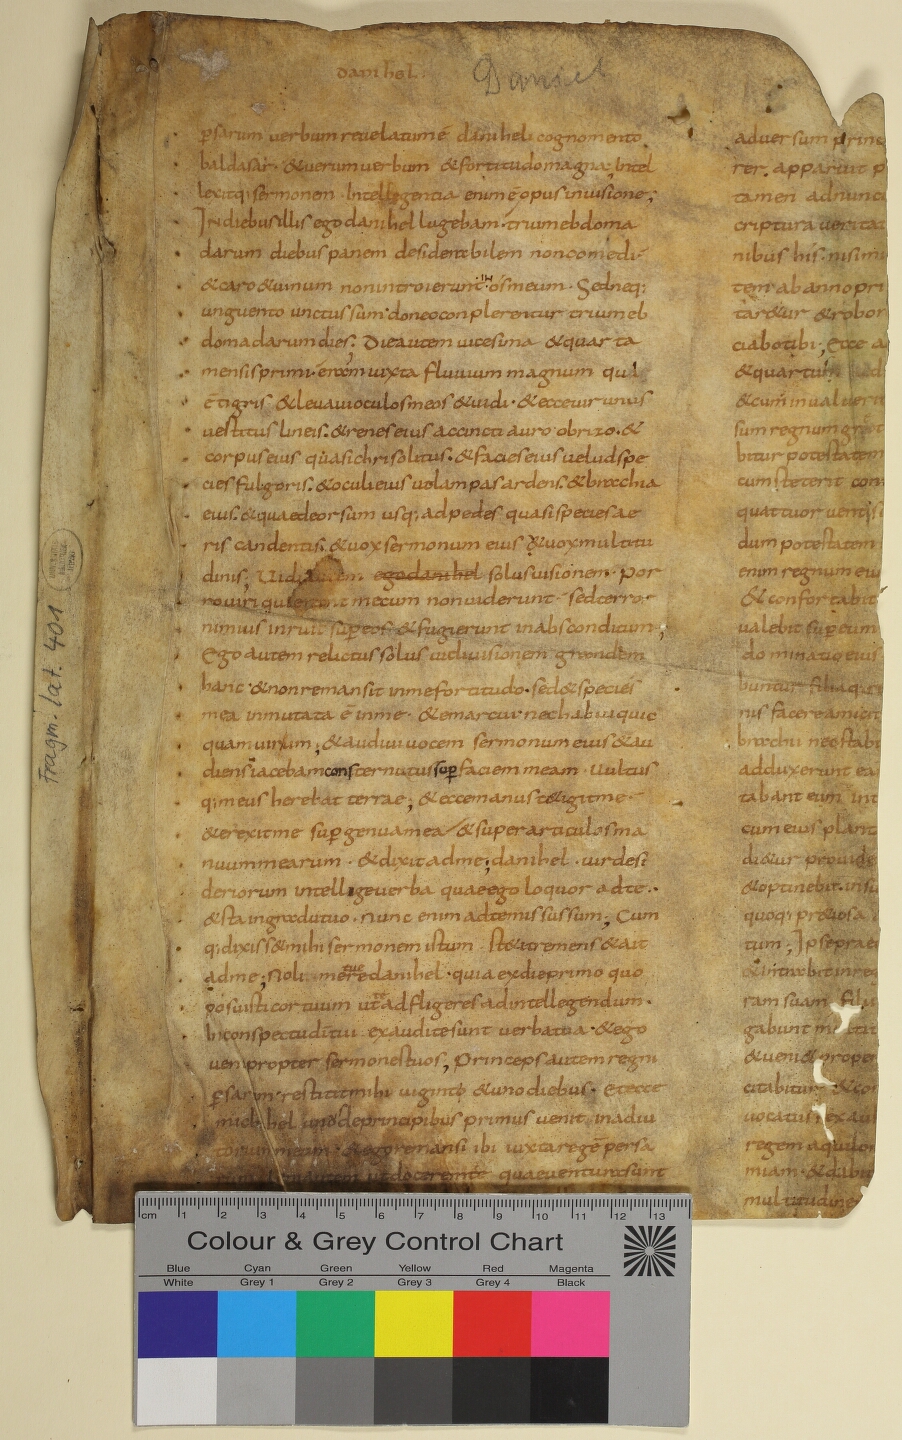 danihel.
Daniel
persarum verbum revelatum ē daniheli cognomento
baldasar · & verum verbum & fortitudo magna; Intel
lexitq; sermonem · Intellegentia enim ē opus in visione;
In diebus illis ego danihel lugebam · trium ebdoma
darum diebus panem desiderabilem non comedi
& caro & vinum non introierunt IN os meum · Sed neq;
unguento unctus sum donec conplerentur trium eb
domadarum dies; Die autem vicesima & quarta
mensis primi · eram iuxta fluvium magnum qui
ē tigris & levavi oculos meos & vidi · & ecce vir unus
vestitus lineis · & renes eius accincti auro obrizo · &
corpus eius quasi chrisolitus · & facies eius velud spe
cies fulgoris · & oculi eius ut lampas ardens · & brachia
eius · & quae deorsum usq; ad pedes quasi species ae
ris candentis · & vox sermonum eius & vox multitu
dinis; Vidi autem ego danihel solus visionem · Por
ro viri qui erant mecum non viderunt · sed terror
nimius inruit super eos · & fugierunt in absconditum;
Ego autem relictus solus vidi visionem grandem
hanc · & non remansit in me fortitudo · sed & species
mea inmutata ē in me · & emarcui nec habui quic
quam virium; & audivi vocem sermonum eius & au
diens iacebam consternatus super faciem meam · Vultus
q; meus herebat terrae; & ecce manus tetigit me
& erexit me super genua mea & super articulos ma
nuum mearum · & dixit ad me; danihel · vir desi
deriorum intellige verba quae ego loquor ad te ·
& sta in gradu tuo · Nunc enim ad te missus sum; Cum
q; dixiss& mihi sermonem istum · steti tremens & ait
ad me; Noli me danihel · quia ex die primo quo
posuisti cor tuum ut te adfligeres ad intellegendum ·
In conspectu di tui exaudita sunt verba tua · & ego
veni propter sermones tuos; Princeps autem regni
persarum restitit mihi viginti & uno diebus · Et ecce
michhel unus de principibus primus venit in adiu
torium meum · & ego remansi ibi iuxta regē persa
autem ut docerem te quae ventura sunt
adversum princ
rer · apparuit p
tamen adnunci
scriptura veritat
nibus his · nisi mi
tem ab anno pri
tar&ur & robor
ciabo tibi; Ecce a
& quartus
& cum invaluerit
sum regnum
bitur potestatem
cum steterit con
quattuor ventos
dum potestatem
enim regnum eiu
& confortabit
valebit super eum
dominatio eius
buntur filiaq;
nis facere amicit
brachii nec stab
adduxerunt ea
tabant eum in t
cum eius plant
di&ur provide
& optinebit · insu
quoq; pretiosa
tum; Ipse prae
& intrabit in re
ram suam · filii
gabunt
& veni& prope
citabitur & co
vocatus
regem aquilon
miam · & dabit
multitudine
Fragm. lat. 401
cm 1 2 3 4 5 6 7 8 9 10 11 12 13
Colour & Grey Control Chart
Blue Cyan Green Yellow Red Magenta
White Grey 1 Grey 2 Grey 3 Grey 4 Black